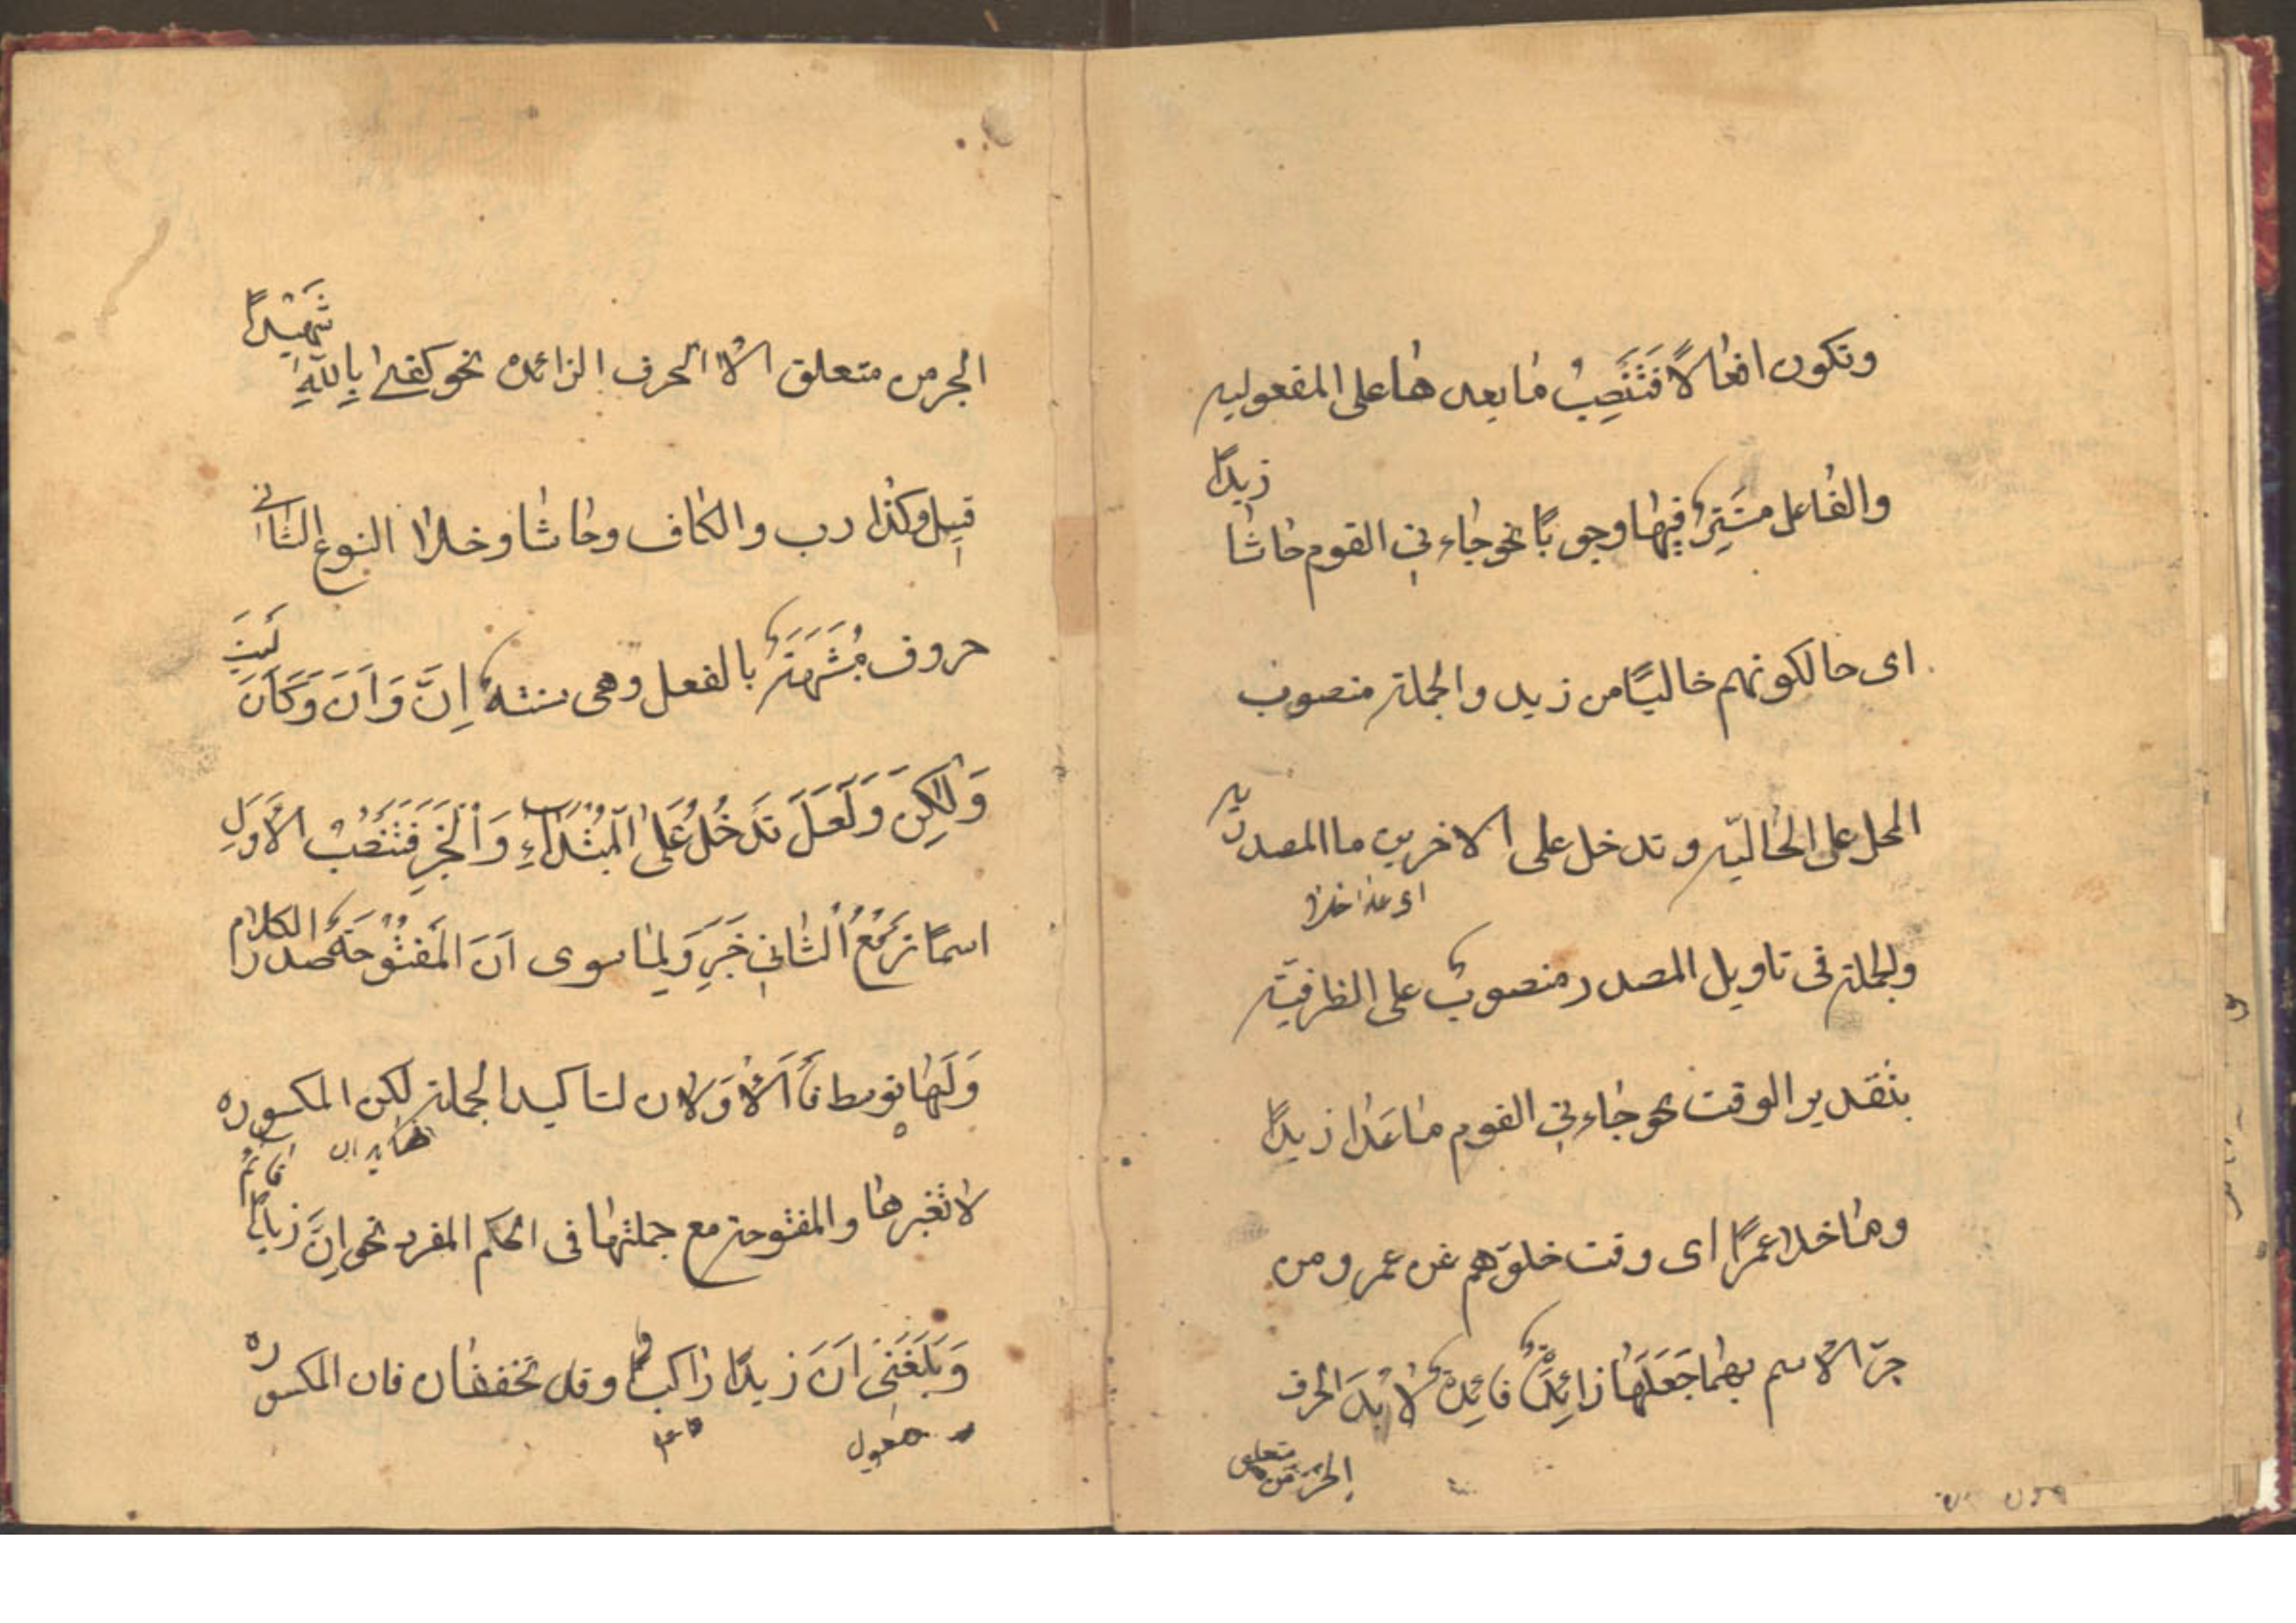 وتكون افعالًا فَتَنَصِبُ ما بعدها على المفعوليه
والفاعل مستِترٌ فيها وجوبًا نحو جاءني القوم حاشا زيدًا
اى حالكونهم خاليًا من زيد والجملة منصوب
المحل على الحاليّه وتدخل على الاخرين ما المصدريّه
اى عدا خلا
والجملة فى تاويل المصدر منصوبٌ على الظرفيّة
بتقدير الوقت نحو جاءني القوم ما عَدا زيدًا
وما خلا عمرًا اى وقت خلوّهم عن عمرو ومن
جرّ الاسم بهما جَعَلَها زائِدَةٌ فائِدةٌ لا بُدَ لحرف
الجرّ من متعلق
الجر من متعلق الا الحرف الزائده نحو كفى بِاللّهِ شَهيْدًا
قيل وكذا رب والكاف وحاشا وخلا النوع الثانى
حروف مُشَبَهَةٌ بالفعل وهى ستةٌ اِنَّ وَاَنَ وَكَاَنَ لَيتَ
وَلٰكِنَ وَلَعَلَ تَدخُلُ عَلىَ المُبْتَداءِ وَالْخَبَرِ فَتَنصُبُ الأَوَلِ
اسمًا تَرفَعُ الثاني خَبَرِ وَلِما سوى اَنَ المَفْتُوحَةُ صدر الكلام
وَلَها توسط فَاَلأوَلان لتاكيد الجملة لكن المكسوره
لا تغيرها والمفتوحة مع جملتها فى الحكم المفرد نحو اِنَّ زيدًا قائمٌ
وَبَلَغَنِى اَنَ زيدًا راكب وقد تخففان فان المكسوره
مفعول
فاعل